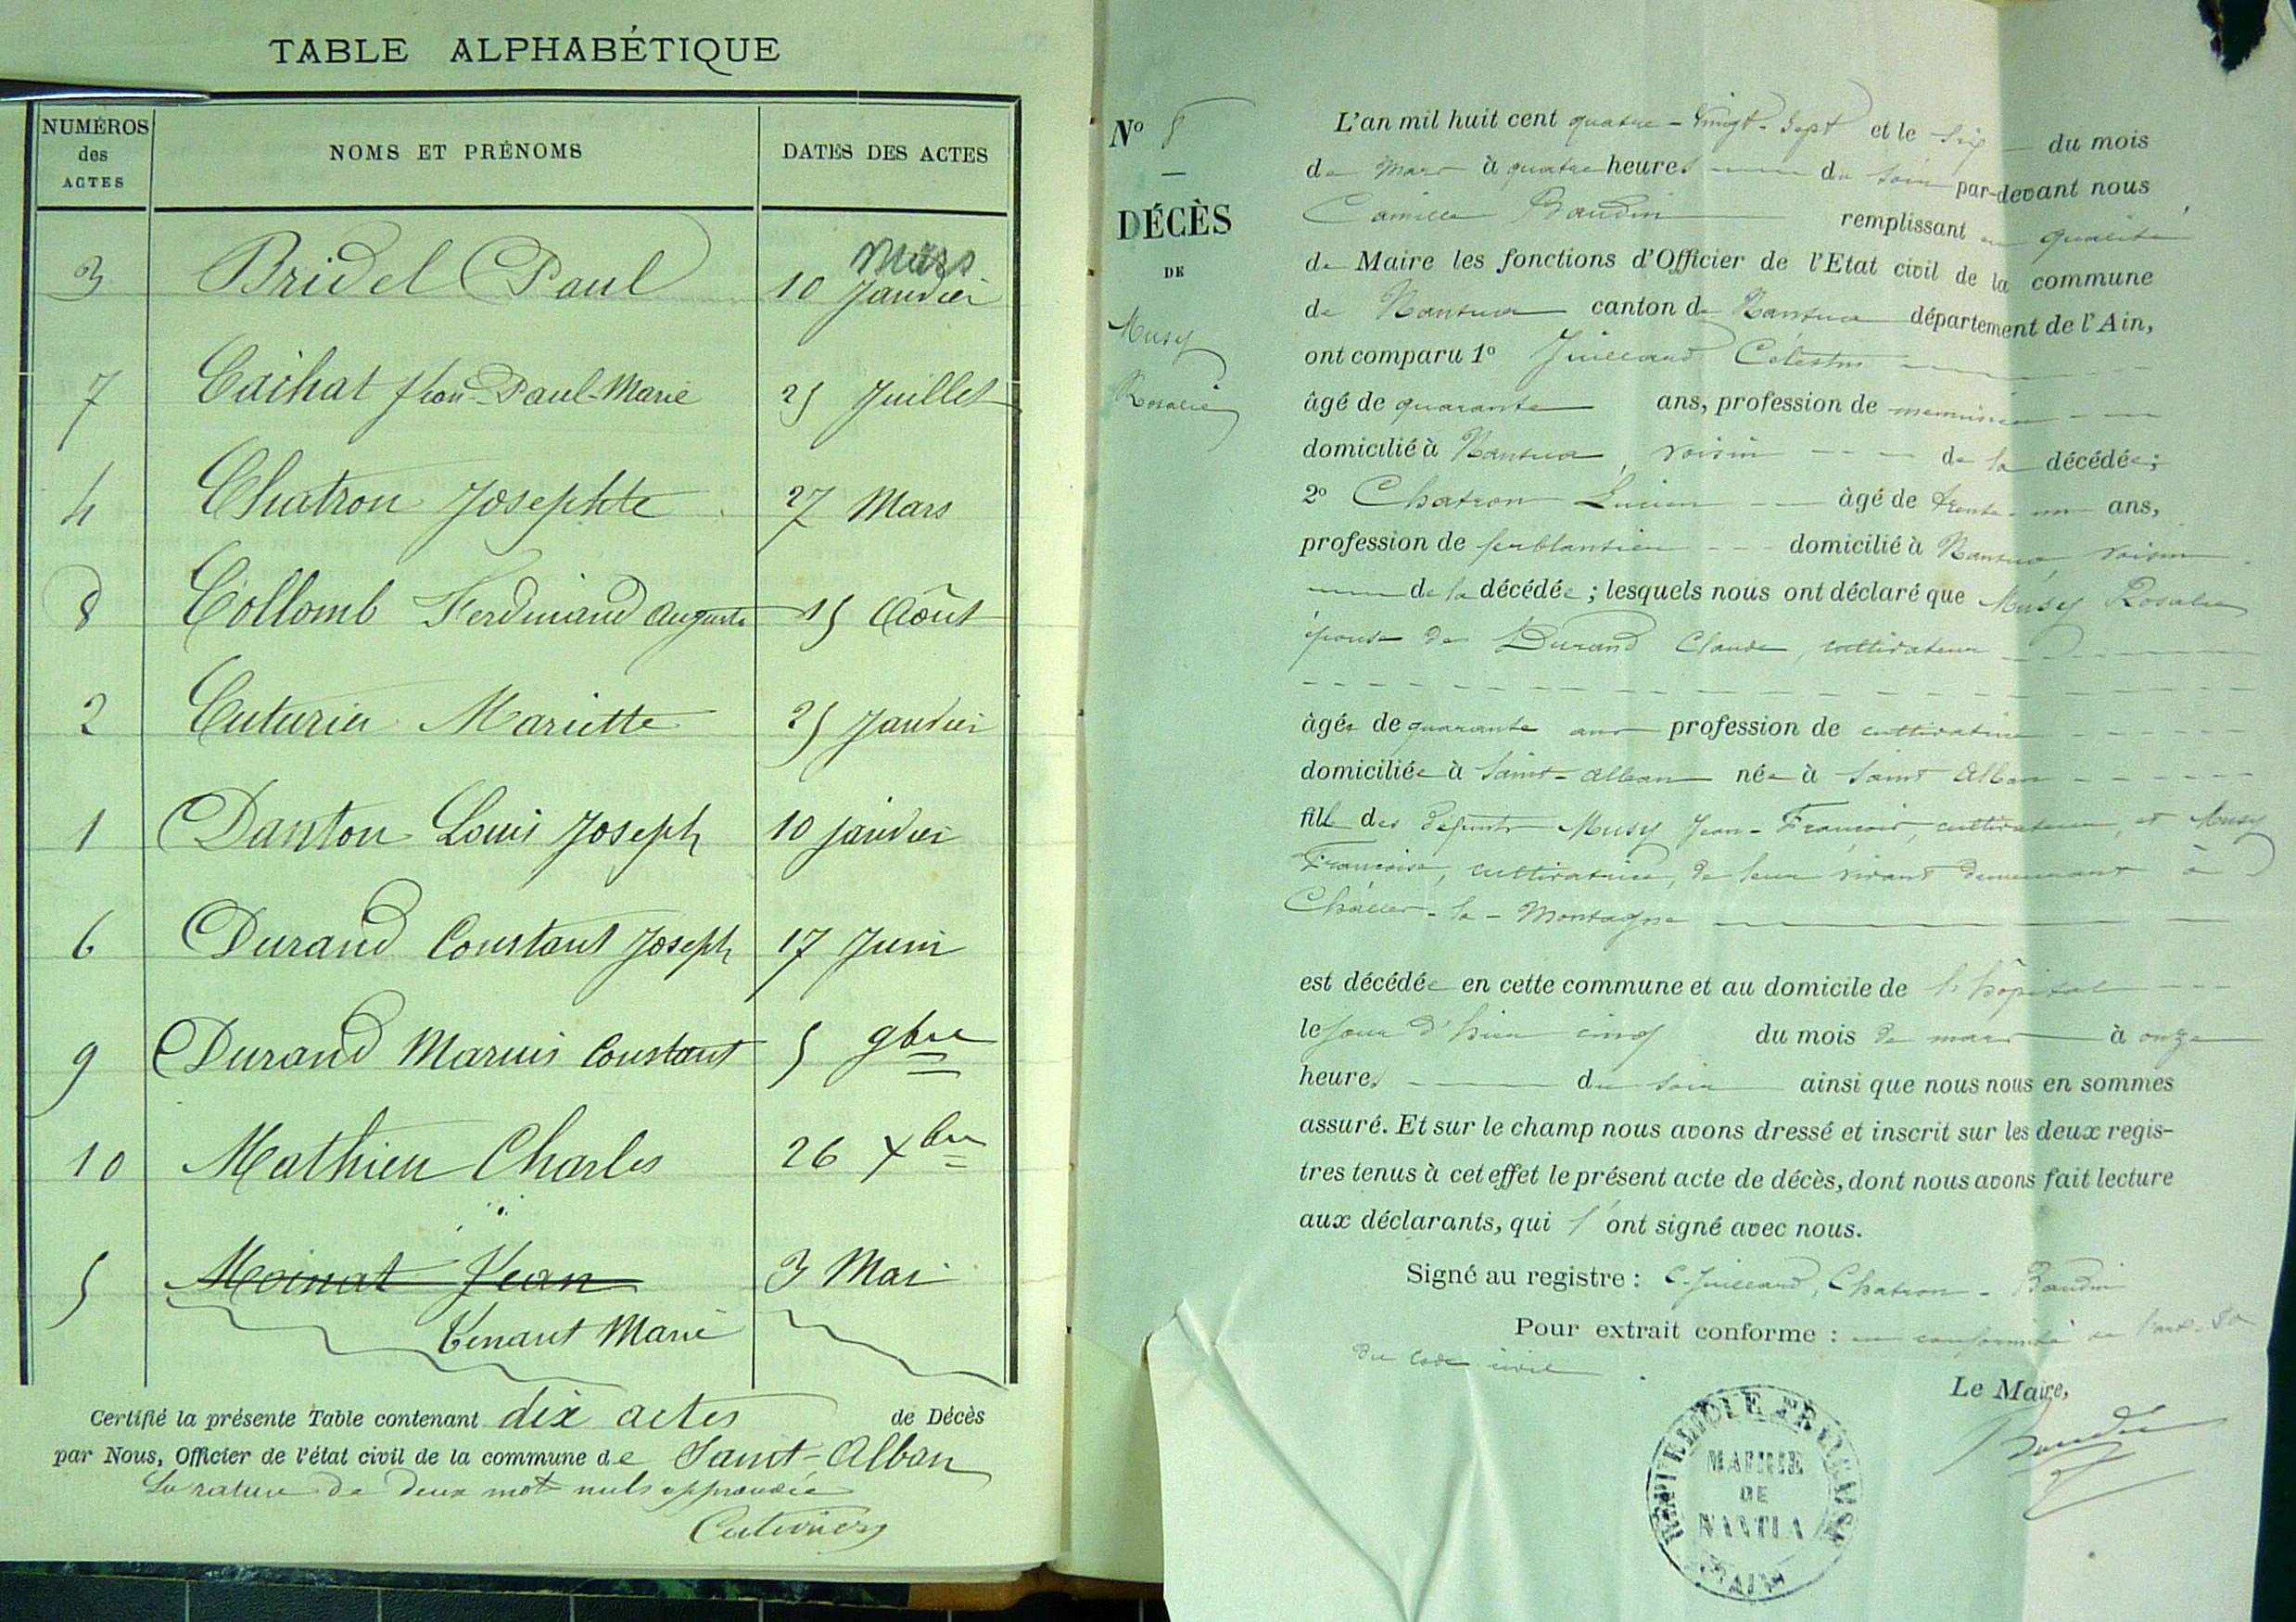 TABLE ALPHABÉTIQUE
NUMÉROS des ACTES NOMS ET PRÉNOMS DATES DES ACTES
3 Bridel Paul 10 Mars Janvier
7 Cachat Jean-Paul-Marie 25 Juillet
4 Chatron Josephte 27 Mars
8 Collomb Ferdinand Auguste 15 Août
2 Cuturier Mariette 25 Janvier
1 Danton Louis Joseph 10 janvier
6 Durand Constant Joseph 17 Juin
9 Durand Marius Constant 5 9bre
10 Mathieu Charles 26 Xbre
5 Moinat Jean 3 Mai
Tenant Marie
Certifié la présente Table contenant dix actes de Décès
par Nous, Officier de l'état civil de la commune de Saint-Alban
La rature de deux mots nuls approuvée
Cuturier
No 8
DÉCÈS
DE
Musy
Rosalie
L'an mil huit cent quatre-vingt-sept et le six du mois
de mars à quatre heures du soir par-devant nous
Camille Baudin remplissant en qualité
de Maire les fonctions d'Officier de l'Etat civil de la commune
de Nantua canton de Nantua département de l'Ain,
ont comparu 1o Juillard Célestin
âgé de quarante ans, profession de menuisier
domicilié à Nantua, voisin de la décédée;
2o Chatron Lucien âgé de trente-un ans,
profession de ferblantier domicilié à Nantua, voisin
de la décédée; lesquels nous ont déclaré que Musy Rosalie
épouse de Durand Claude, cultivateur
âgée de quarante ans profession de cultivatrice
domiciliée à Saint-Alban née à Saint Alban
fille des défunts Musy Jean-François, cultivateur, et Musy
Françoise, cultivatrice, de leur vivant demeurant à
-la-Montagne
est décédée en cette commune et au domicile de l'hôpital
le jour d'hier cinq du mois de mars à onze
heures du soir ainsi que nous nous en sommes
assuré. Et sur le champ nous avons dressé et inscrit sur les deux regis-
tres tenus à cet effet le présent acte de décès, dont nous avons fait lecture
aux déclarants, qui l'ont signé avec nous.
Signé au registre: C. Juillard, Chatron - Baudin
Pour extrait conforme: en conformité de l'art. 80
du Code civil
Le Maire,
Baudin
RÉPUBLIQUE FRANÇAISE
MAIRIE
DE
NANTUA
(AIN)